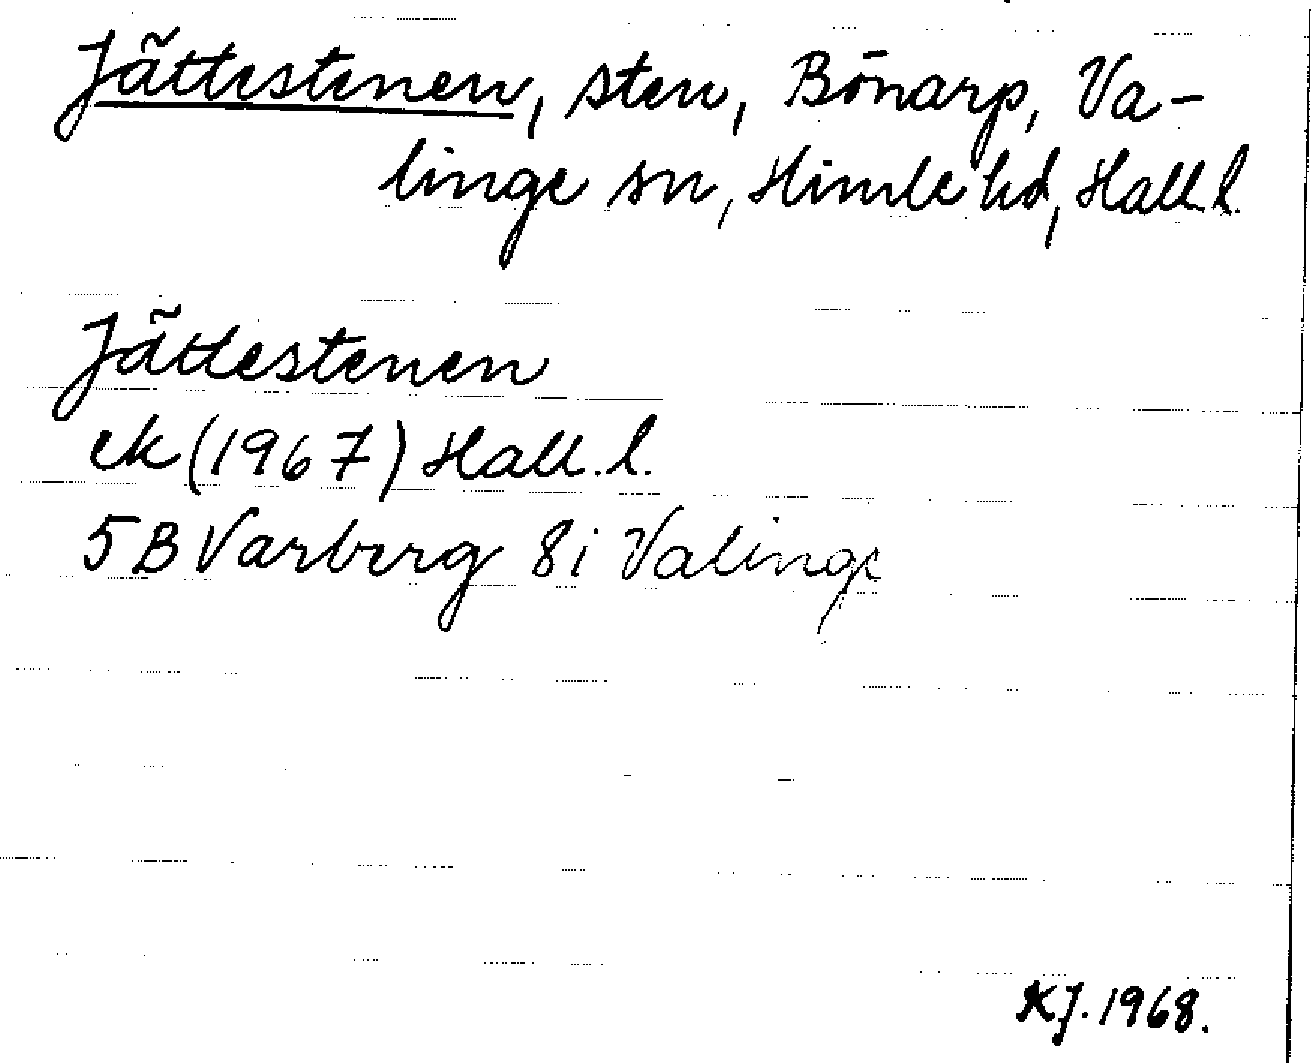 Jättestenen, sten, Bönarp, Va-
linge sn, Himle hd, Hall. l.
Jättestenen
ek (1967) Hall. l.
5B Varberg 8i Valinge
KJ. 1968.